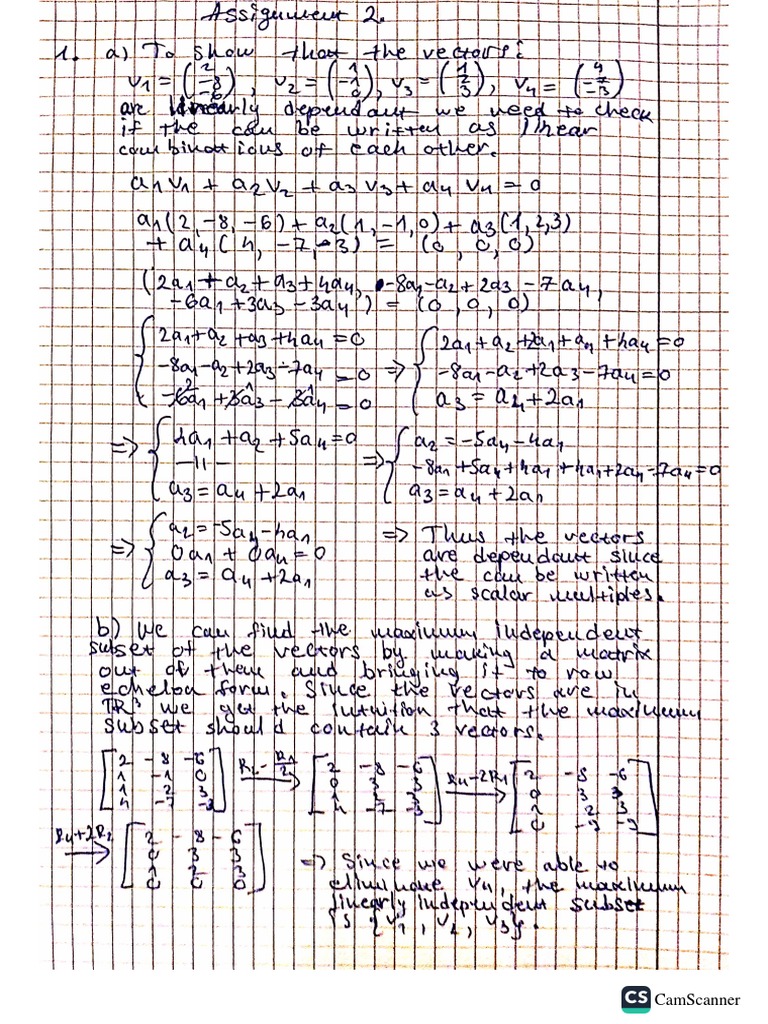 Assignment 2.
1. a) To show that the vectors:
v1 = (2 -8 -6), v2 = (1 -1 0), v3 = (1 2 3), v4 = (4 -7 -3)
are linearly dependant we need to check
if the can be written as linear
combinations of each other.
a1v1 + a2v2 + a3v3 + a4v4 = 0
a1(2,-8,-6) + a2(1,-1,0) + a3(1,2,3)
+ a4(4,-7,-3) = (0,0,0)
(2a1 + a2 + a3 + 4a4, -8a1 - a2 + 2a3 - 7a4,
-6a1 + 3a3 - 3a4) = (0,0,0)
{ 2a1 + a2 + a3 + 4a4 = 0 { 2a1 + a2 + 2a1 + a4 + 4a4 = 0
-8a1 - a2 + 2a3 - 7a4 = 0 => -8a1 - a2 + 2a3 - 7a4 = 0
-6a1 + 3a3 - 3a4 = 0 a3 = a4 + 2a1
=> { 4a1 + a2 + 5a4 = 0 => { a2 = -5a4 - 4a1
-11- -8a1 + 5a4 + 4a1 + 4a1 + 2a4 - 7a4 = 0
a3 = a4 + 2a1 a3 = a4 + 2a1
=> { a2 = -5a4 - 4a1 => Thus the vectors
0a1 + 0a4 = 0 are dependant since
a3 = a4 + 2a1 the can be written
as scalar multiples.
b) We can find the maximum independent
subset of the vectors by making a matrix
out of them and bringing it to row
echelon form. Since the vectors are in
IR³ we get the intuition that the maximum
subset should contain 3 vectors.
[2 -8 -6] R2 - R1/2 [2 -8 -6] R4-2R1 [2 -8 -6]
[1 -1 0] [0 3 3] [0 3 3]
[1 2 3] [1 2 3] [1 2 3]
[4 -7 -3] [4 -7 -3] [0 -9 -9]
R4+2R2 [2 -8 -6] => Since we were able to
[0 3 3] eliminate v4, the maximum
[1 2 3] linearly independent subset
[0 0 0] is {v1, v2, v3}.